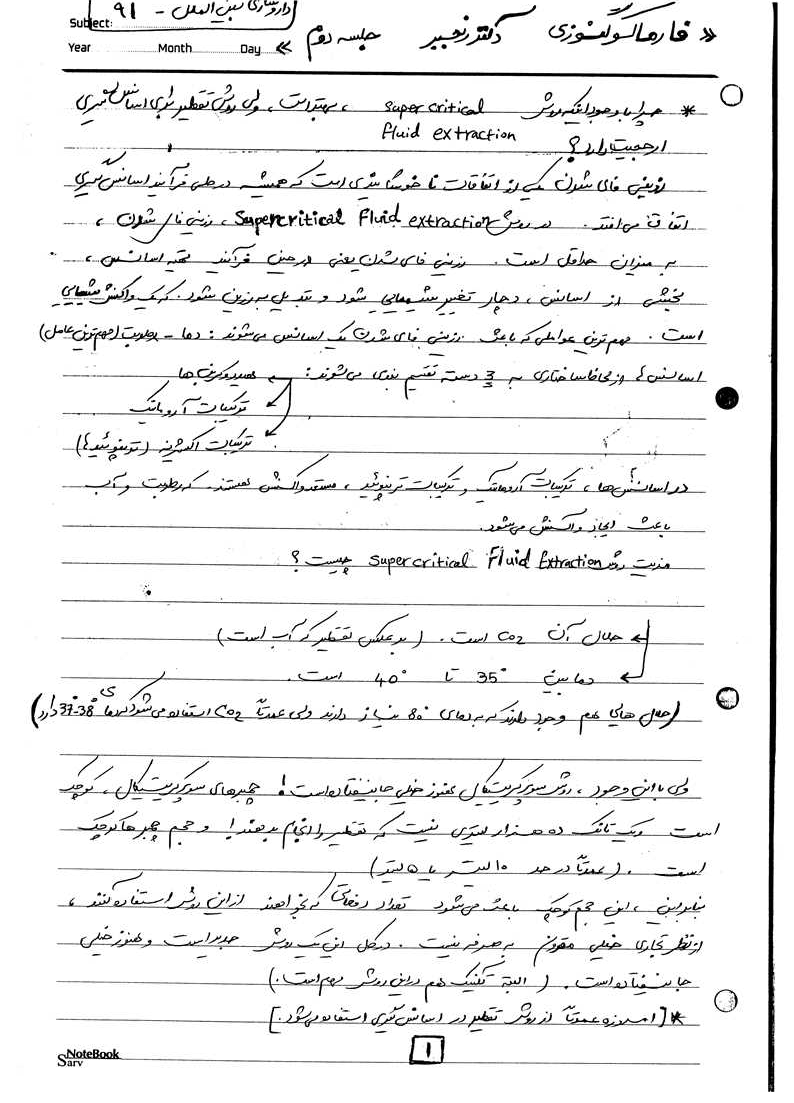 داروسازی بین الملل - 91
Subject:
« فارماکوگنوزی دکتر رنجبر جلسه دوم »
Year Month Day
* چرا با وجود اینکه روش supercritical ، بهتر است ، ولی روش تقطیر برای اسانس گیری
fluid extraction
ارجحیت دارد؟
رزینی فای شدن یکی از اتفاقات ناخوشایندی است که همیشه در طی فرآیند اسانس گیری
اتفاق می افتد. در روش Supercritical Fluid extraction ، رزینی فای شدن ،
به میزان حداقل است. رزینی فای شدن یعنی در حین فرآیند تهیه اسانس ،
بخشی از اسانس ، دچار تغییر شیمیایی شود و تبدیل به رزین شود. که یک واکنش شیمیایی
است. مهم ترین عواملی که باعث رزینی فای شدن یک اسانس می شوند : دما - رطوبت (مهم ترین عامل)
اسانس ها از لحاظ ساختاری به 3 دسته تقسیم بندی می شوند : هیدروکربن ها
ترکیبات آروماتیک
ترکیبات اکسیژنه (ترپنوئیدها)
در اسانس ها ، ترکیبات آروماتیک و ترکیبات ترپنوئید ، مستعد واکنش هستند. که رطوبت و آب
باعث ایجاد واکنش می شود.
مزیت روش Supercritical Fluid Extraction چیست ؟
حلال آن CO2 است . (برعکس تقطیر که آب است)
دما بین 35° تا 40° است.
(حلال هایی هم وجود دارند که به دمای 80° نیاز دارند ولی عمدتاً CO2 استفاده می شود که دمای 37-38° دارد)
ولی با این وجود ، روش سوپرکریتیکال هنوز خیلی جا نیفتاده است! چمبرهای سوپرکریتیکال ، کوچک
است و یک تانک ده هزار لیتری نیست که تقطیر را انجام بدهند! و حجم چمبرها کوچک
است . (عمدتاً در حد 10 لیتر یا 5 لیتر)
بنابراین ، این حجم کوچک باعث می شود تعداد دفعاتی که بخواهند از این روش استفاده کنند ،
از نظر تجاری خیلی مقرون به صرفه نیست . در کل این یک روش جدید است و هنوز خیلی
جا نیفتاده است. (البته تکنیک هم در این روش مهم است.)
*[امروزه عمدتاً از روش تقطیر در اسانس گیری استفاده می شود.]
1
NoteBook
Sarv